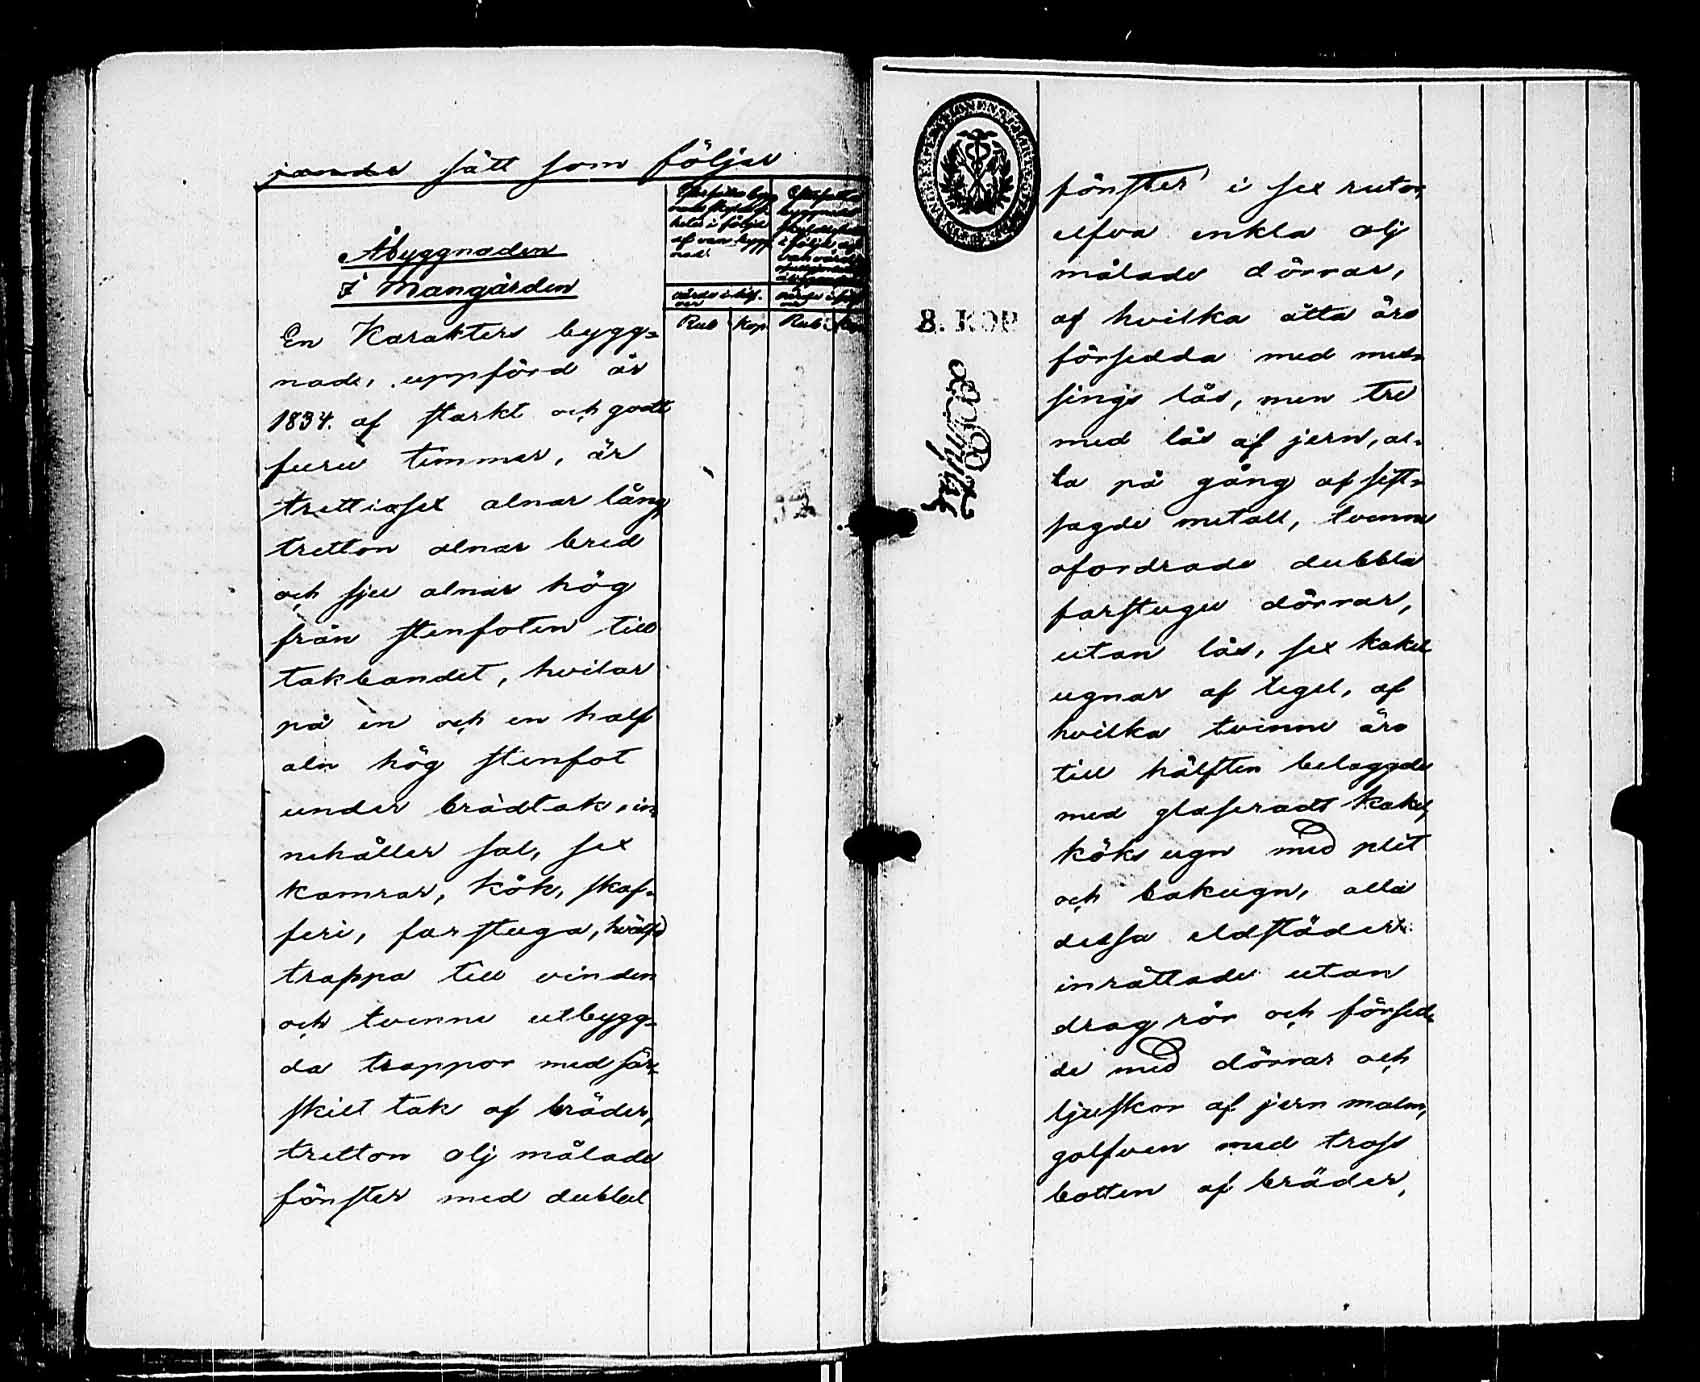 jande sätt som följer
Åbyggnaden
i Mangården
värde i sölf-
ver
Rub Kop Rub Kop
En Karakters bygg-
nad, uppförd år
1834. af starkt och godt
furu timmer, är
trettiosex alnar lång
tretton alnar bred
och sju alnar hög
från stenfoten till
takbandet, hvilar
på en och en half
aln hög stenfot
under brädtak, in-
nehåller sal, sex
kamrar, kök, skaf-
feri, farstuga, hvälfd
trappa till vinden
och tvenne utbygg-
da trappor med sär-
skilt tak af bräder,
tretton olj målade
fönster med dubbel
8. KOP
fönster i sex rutor,
elfva enkla olj
målade dörrar,
af hvilka åtta äro
försedda med mes-
sings lås, men tre
med lås af jern, al-
la på gång af sist-
sagde metall, tvenne
ofordrade dubbla
farstugu dörrar,
utan lås, sex kakel
ugnar af tegel, af
hvilka tvenne äro
till hälften belaggde
med glaseradt kakel,
köks ugn med plit
och bakugn, alla
dessa eldstäder
inrättade utan
drag rör och försed-
de med dörrar och
ljuskor af jern malm,
golfven med tross
botten af bräder,